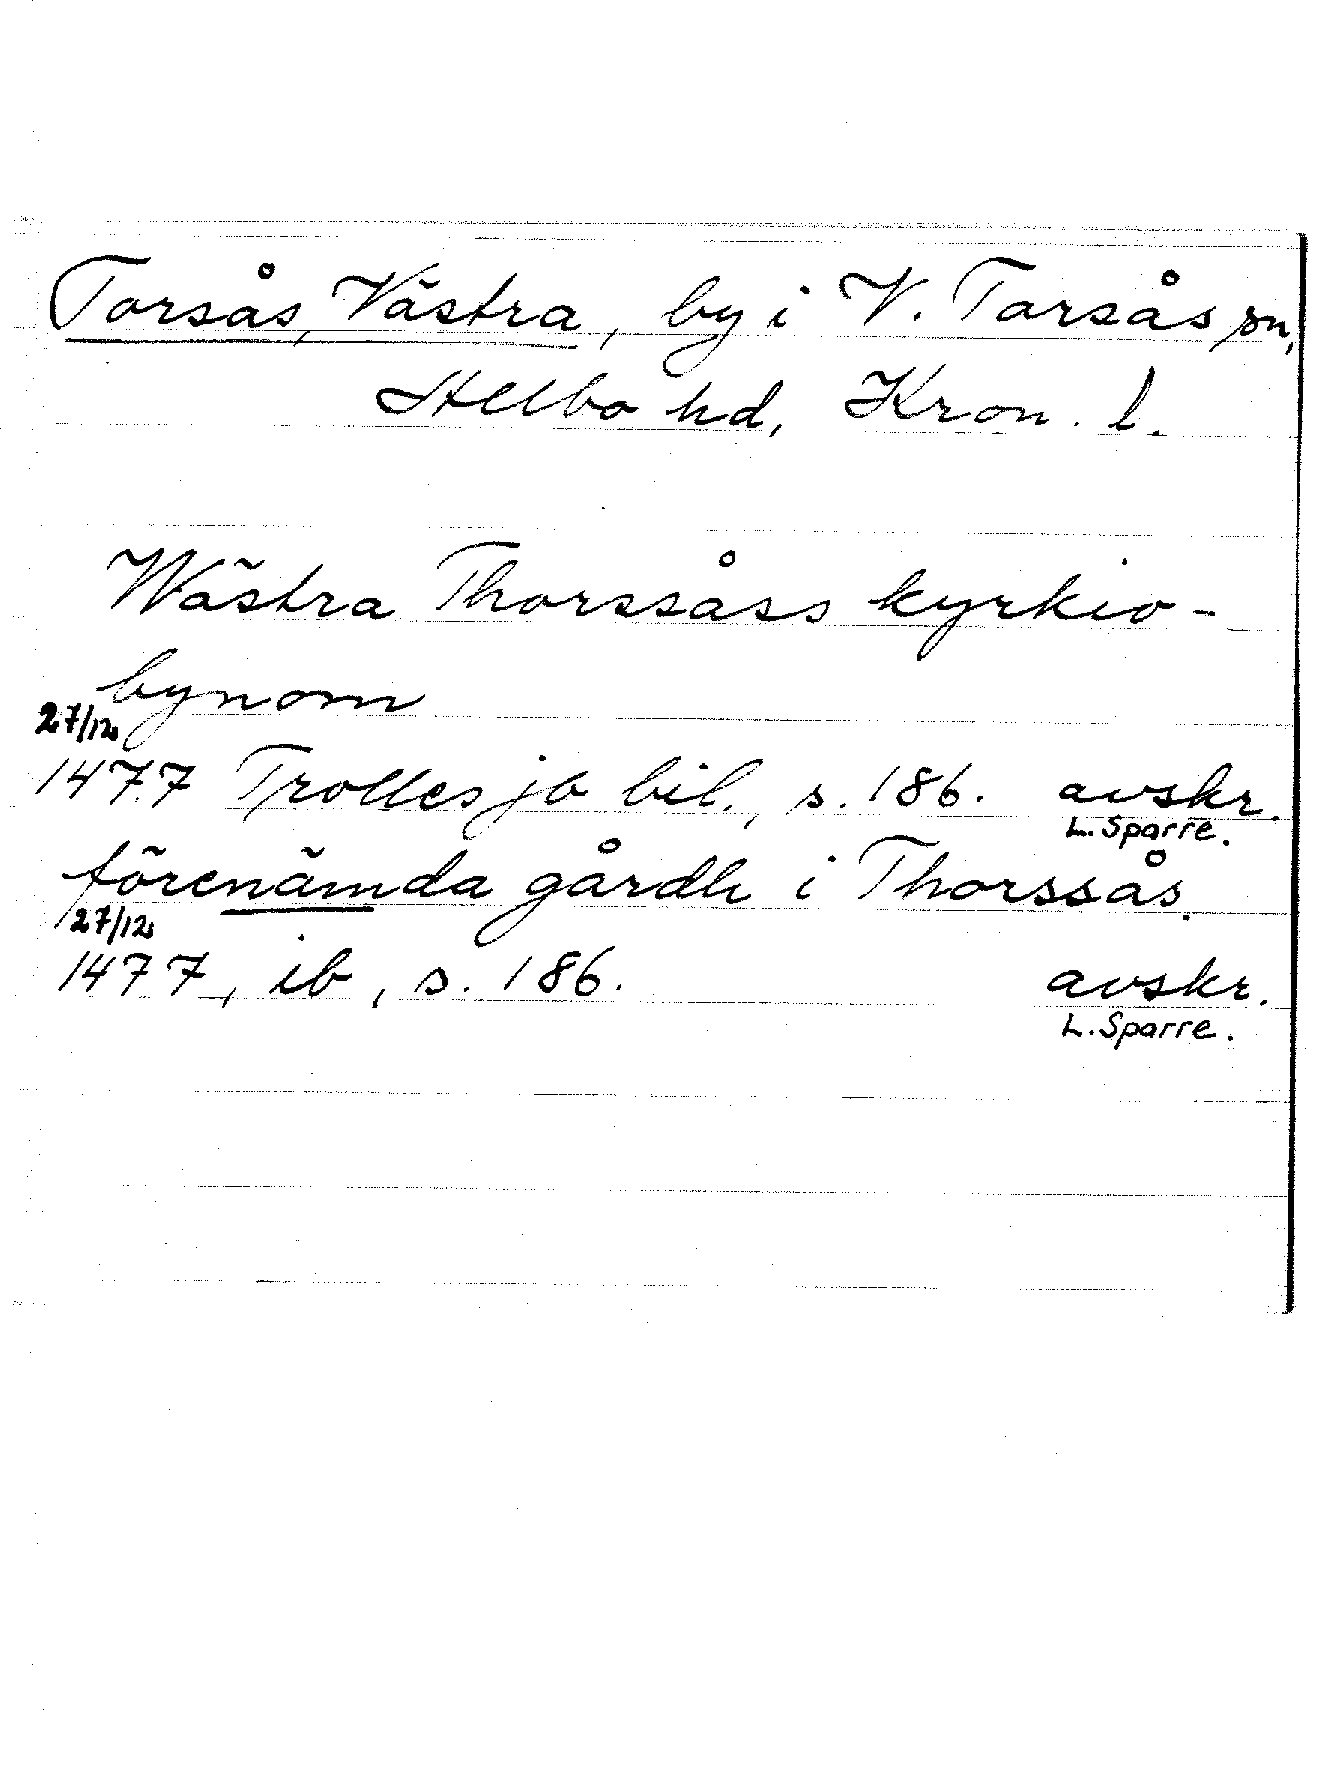 Torsås, Västra, by i V. Torsås sn,
Allbo hd, Kron. l.
Wästra Thorssåss kyrkio-
bynom
27/12
1477 Trolles jb bil., s. 186. avskr.
L. Sparre.
förenämda gårdh i Thorssås.
27/12
1477, ib, s. 186. avskr.
L. Sparre.